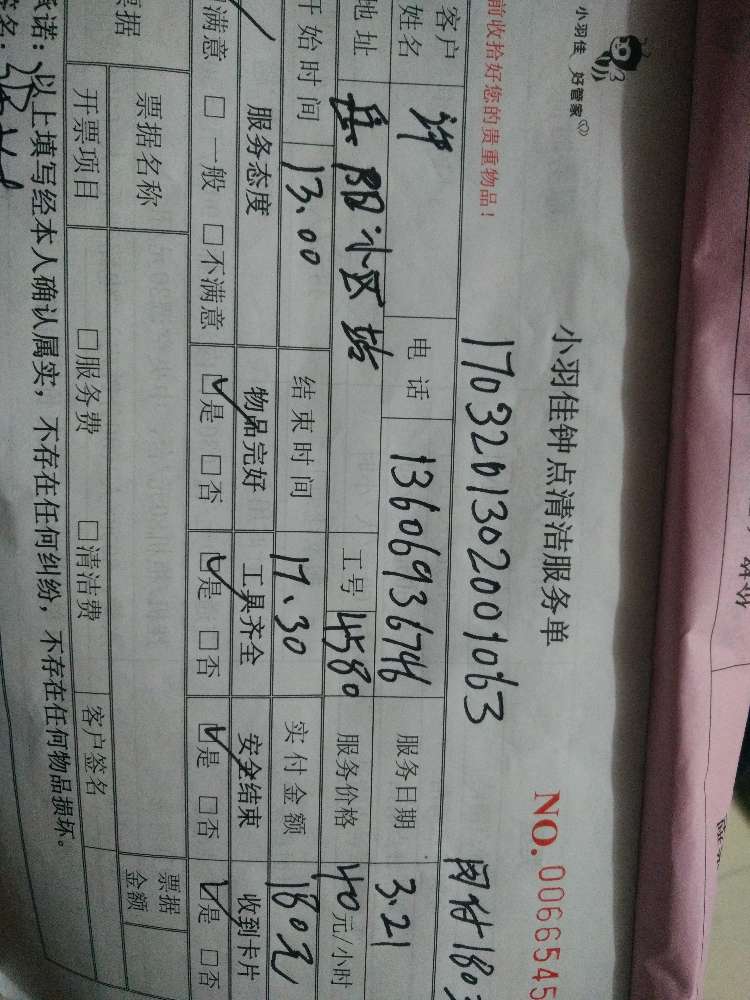 小羽佳 好管家
前收拾好您的贵重物品!
小羽佳钟点清洁服务单
NO. 0066545
170320130200 9063
网付180元
客户姓名 许 电话 13606936746 服务日期 3.21
地址 岳阳小区站 工号 4580 服务价格 40元/小时
开始时间 13.00 结束时间 17.30 实付金额 180元
服务态度 物品完好 工具齐全 安全结束 收到卡片
满意 □一般 □不满意 □是 □否 □是 □否 □是 □否 □是 □否
票据 票据名称 票据金额
开票项目 □服务费 □清洁费 客户签名
承诺:以上填写经本人确认属实,不存在任何纠纷,不存在任何物品损坏。
签名: